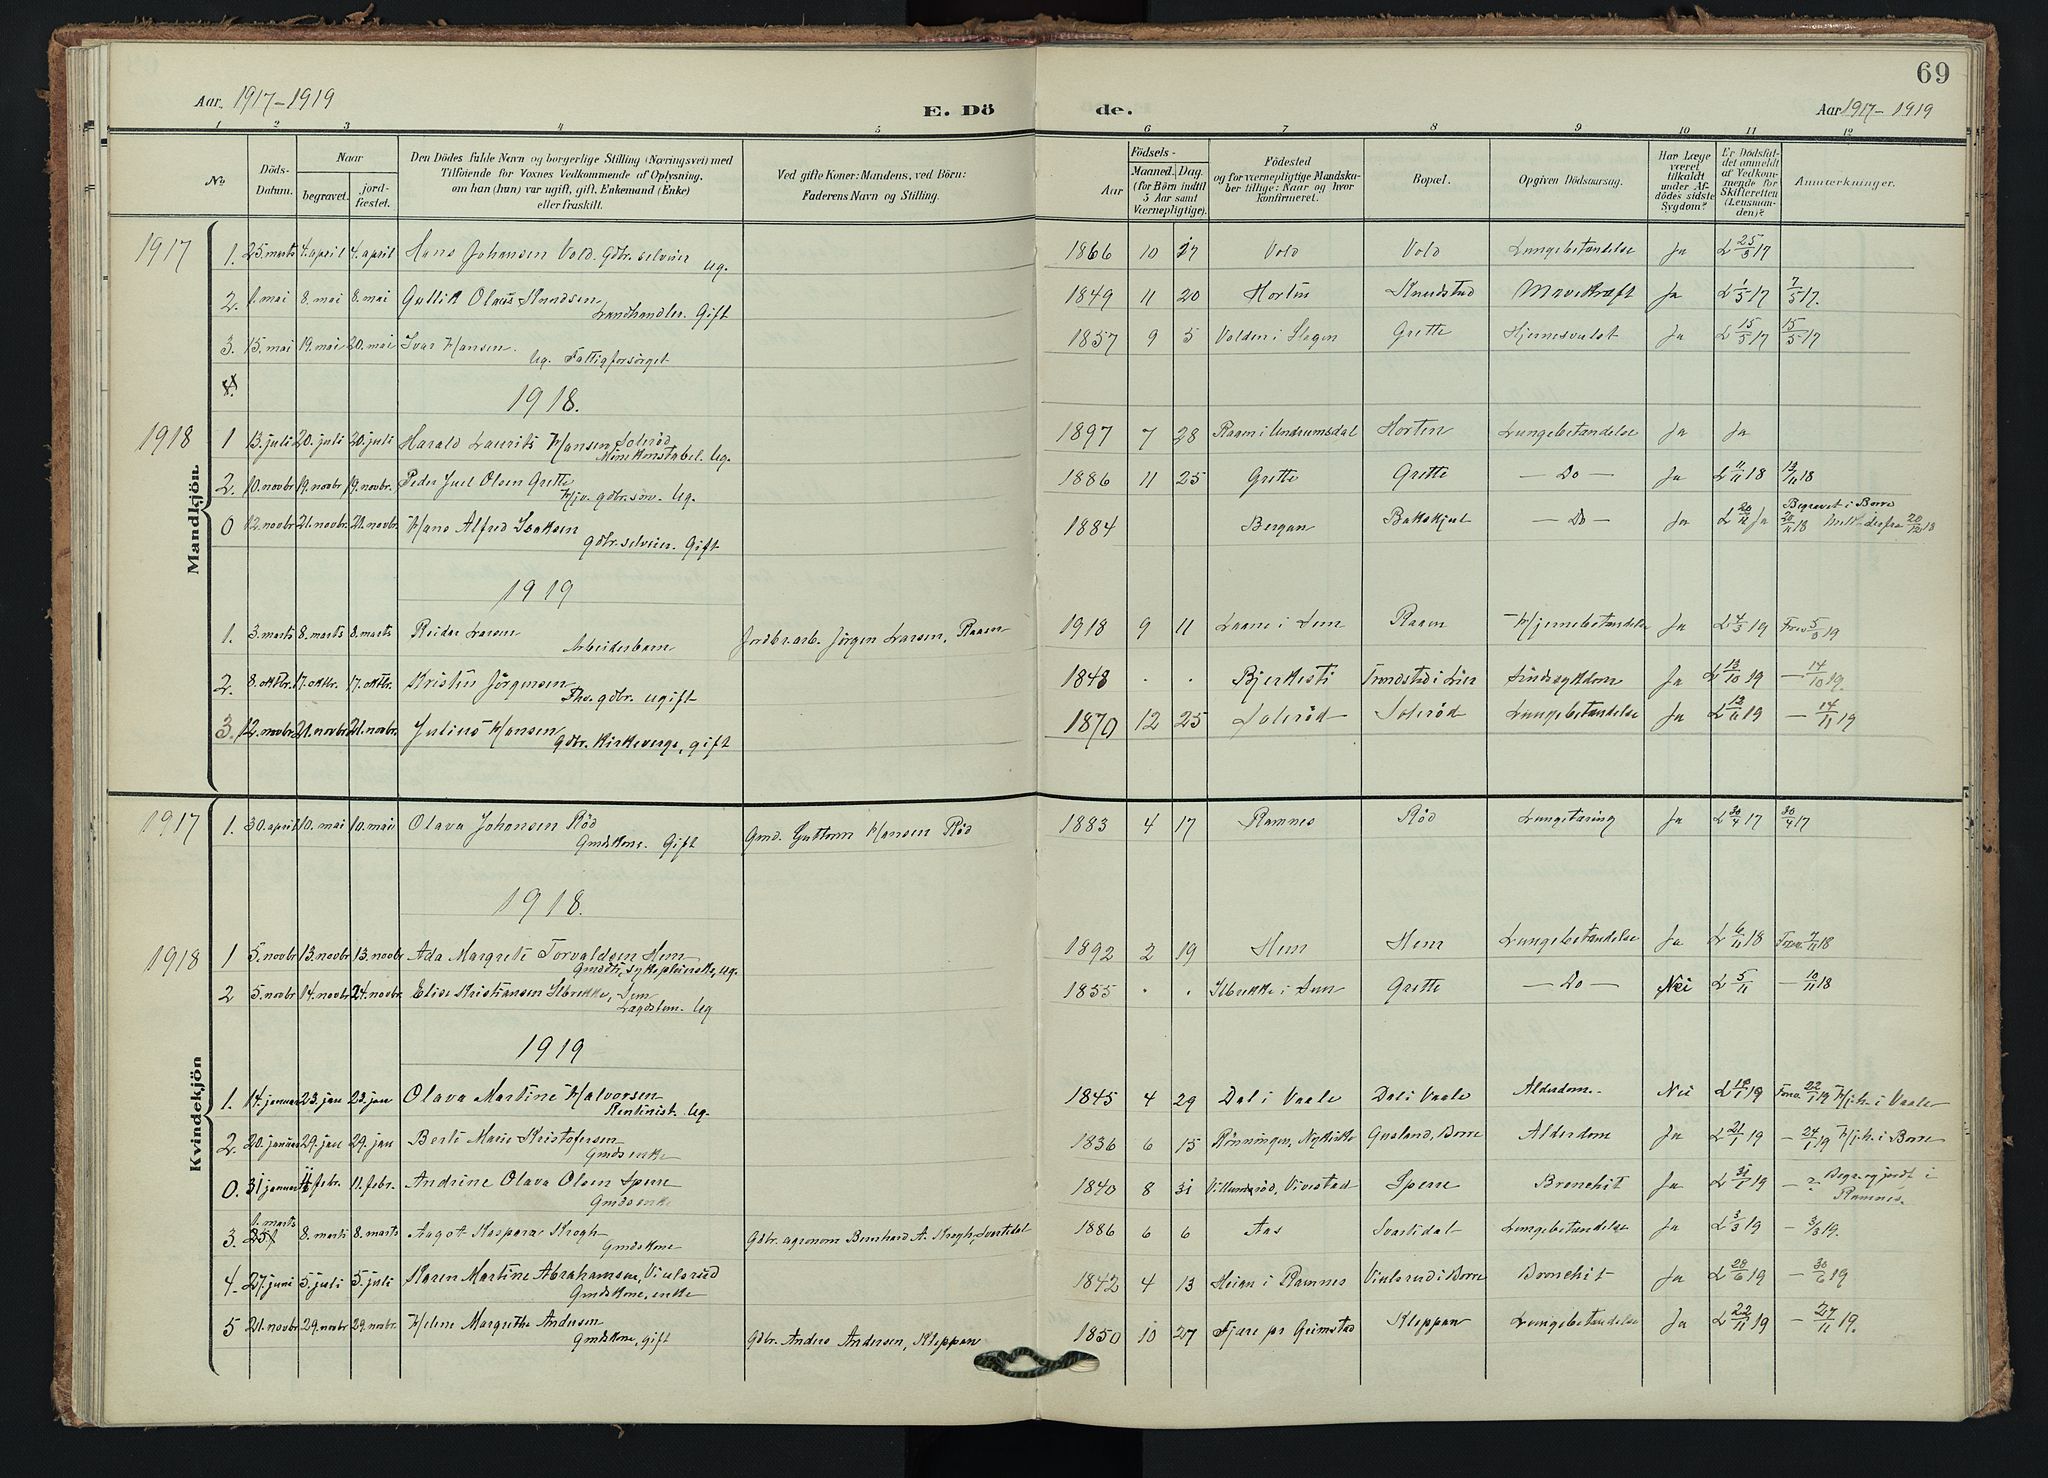 69
Aar. 1917-1919
E. Dö
de.
Aar 1917-1919
1 2 3 4 5 6 7 8 9 10 11 12
No
Döds-Datum.
Naar
begravet.
jord-fæstet.
Den Dödes fulde Navn og borgerlige Stilling (Næringsvei) med
Tilföiende for Voxnes Vedkommende af Oplysning,
om han (hun) var ugift, gift, Enkemand (Enke)
eller fraskilt.
Ved gifte Koner: Mandens, ved Börn:
Faderens Navn og Stilling.
Födsels-
Aar
Maaned. Dag.
(for Börn indtil
5 Aar samt
Værnepligtige).
Födested
og for værnepligtige Mandska-
ber tillige: Naar og hvor
konfirmeret.
Bopæl.
Opgiven Dödsaarsag.
Har Læge
været
tilkaldt
under Af-
dödes sidste
Sygdom?
Er Dödsfal-
det anmeldt
af Vedkom-
mende for
Skifteretten
(Lensman-
den)?
Anmærkninger.
Mandkjön.
1917
1. 25. marts 4. april 4. april Hans Johansen Vold. Gdbr. selveier Ug. 1866 10 27 Vold Vold Lungebetændelse Ja L 25/3 17
2. 1. mai 8. mai 8. mai Gullik Olaus Knudsen Landhandler. Gift 1849 11 20 Horten Knudstad Mavekræft Ja L 1/5 17 7/5 17.
3. 15. mai 19. mai 20. mai Ivar Hansen. Ug. Fattigforsörget 1857 9 5 Volden i Slagen Grette Hjernesvulst Ja L 15/5 17 15/5 17
1918.
1918
1 13. juli 20. juli 20. juli Harald Laurits Hansen Solerød Minekonstabel. Ug. 1897 7 28 Raaen i Undrumsdal Horten Lungebetændelse Ja Ja
2. 10. novbr 19. novbr 19. novbr. Peder Juel Olsen Grette Hjv. gdbr. søn. Ug. 1886 11 25 Grette Grette — Do — Ja L 11/11 18 12/11 18
0 12. novbr 21. novbr. 21. novbr. Hans Alfred Isaksen gdbr. selveier. Gift 1884 Bergan Bakskjul — Do — Ja L 20/11 Ja 20/11 18 Begravet i Borre
1919
1. 3. marts 8. marts 8. marts Reidar Larsen Arbeiderbarn Jordbr. arb. Jørgen Larsen, Raaen 1918 9 11 Laane i Sem Raaen Hjernebetændelse Ja L 4/3 19 5/3 19
2. 8. oktbr. 17. oktbr. 17. oktbr. Kristen Jørgensen Fhv. gdbr. ugift 1848 . . Bjerkesti Sindssykdom Ja L 13/10 19 — 14/10 19.
3. 12. novbr 21. novbr 21. novbr. Julius Hansen Gdbr. Kirkeverge, gift 1870 12 25 Solerød Solerød Lungebetændelse Ja L 13/11 19 — 14/11 19
Kvindekjön
1917
1. 30. april 10. mai 10. mai Olava Johansen Rød Gmdskone. Gift Gmd. Guttorm Hansen Rød 1883 4 17 Ramnes Rød Lungetæring Ja L 30/4 17 30/4 17
1918.
1918
1 5. novbr 13. novbr 13. novbr Ada Margrete Torvaldsen Hem Gmdsdtr, sykepleierske, ug. 1892 2 19 Hem Hem Lungebetændelse Ja L 6/11 18 7/11 18
2 5. novbr 14. novbr 24. novbr. Elise Kristiansen Ilbrekke, Sem Lægdslem. Ug 1855 . . Ilbrekke i Sem Grette — Do — Nei L 5/11 — 10/11 18
1919
1. 14. januar 23. jan 23. jan Olava Martine Halvorsen Rentenist. Ug. 1845 4 29 Dal i Vaale Dal i Vaale Alderdom. Nei L 18/1 19 22/1 19 Hj.h. i Vaale
2. 20. januar 29. jan 29. jan Berte Marie Kristofersen Gmdsenke 1836 6 15 Rønningen, Nykirke Gusland, Borre Alderdom Ja L 21/1 19 — 24/1 19 Hj.h. i Borre
0. 31 januar 11 febr. 11. febr. Andrine Olava Olsen Sperre Gmdsenke 1840 8 31 Villumsrød, Vivestad Sperre Bronchit Ja L 31/1 19 — 2. Begr. og jordf. i Ramnes.
3. 1. marts 8. marts 8. marts Aagot Kaspara Krogh Gmdskone Gdbr. agronom Bernhard A. Krogh, Svartdal 1886 6 6 Aas Svartdal Lungebetændelse Ja L 3/3 19 — 3/3 19.
4 27. juni 5. juli 5. juli Karen Martine Abrahamsen, Vinlsrud Gmdskone, enke 1842 4 13 Heian i Ramnes Vinlsrud i Borre Bronchit Ja L 28/6 19 — 30/6 19
5 21. novbr 29. novbr 29. novbr Helene Margrethe Andersen Gmdskone, gift Gdbr. Anders Andersen, Kleppan 1850 10 27 Fjære pr Grimstad Kleppan Lungebetændelse Ja L 22/11 19 — 27/11 19.